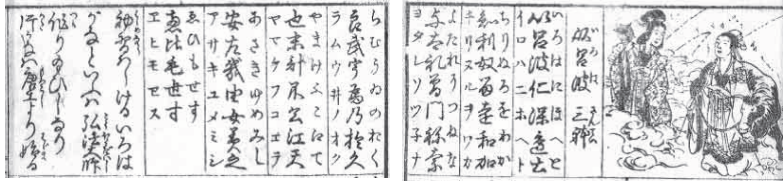 いろは
呂波 三
いろはにほへと
以呂波仁保邊止
イロハニホヘト
ちりぬるをわか
知利奴留遠和加
チリヌルヲワカ
よたれそつねな
与太礼曽門祢奈
ヨタレソツ子ナ
らむうゐのおく
良武宇為乃於久
ラムウ井ノオク
やまけふこえて
也末計不己江天
ヤマケフコエテ
あさきゆめみし
安左幾由女美之
アサキユメミシ
ゑひもせす
恵比毛世寸
ヱヒモセス
いろは
かなといふハ弘法
作り なり
より始る